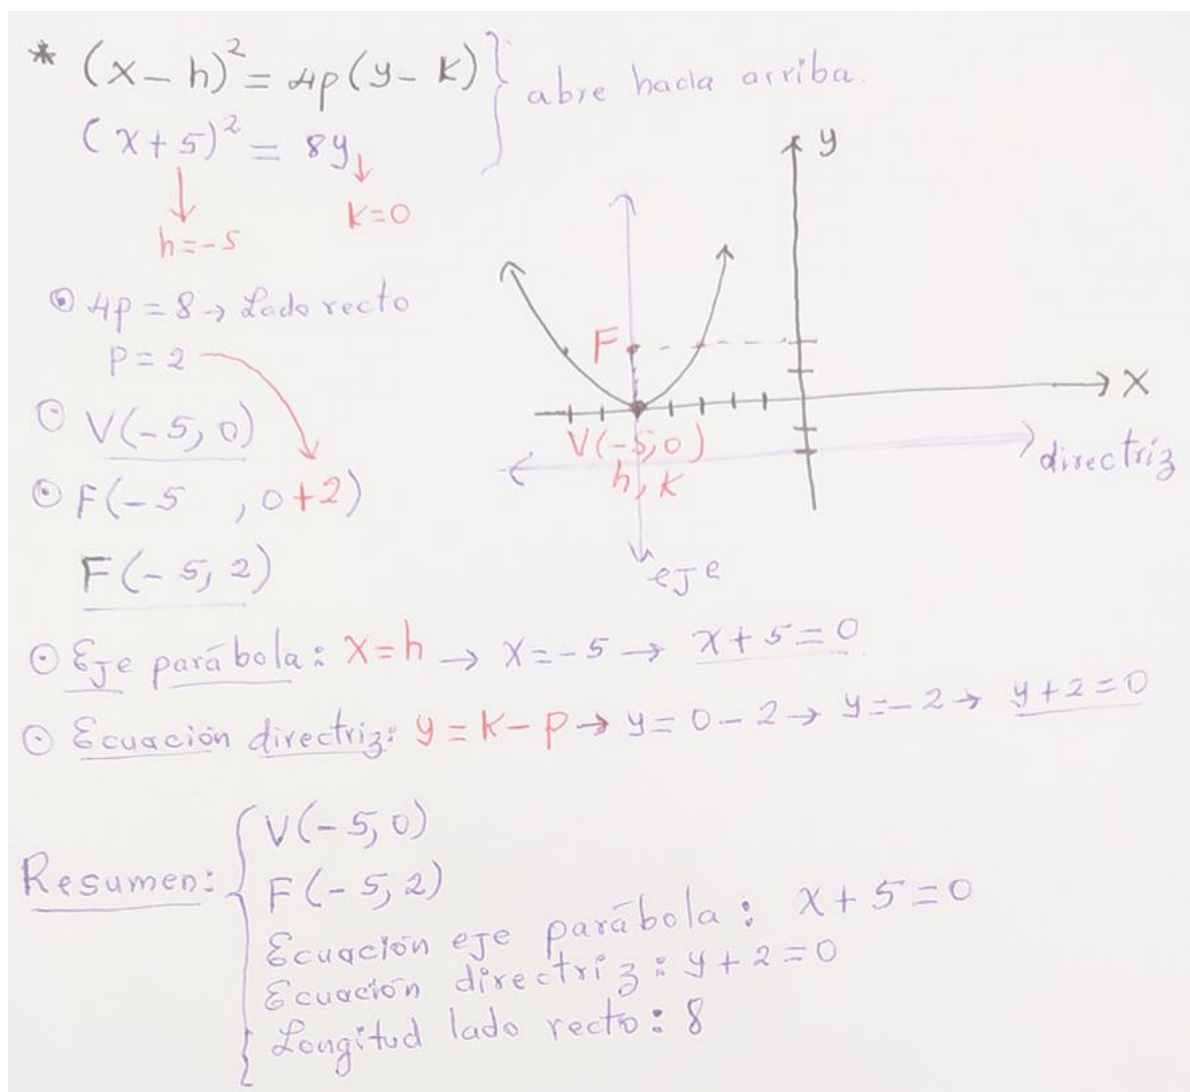 * (x – h)² = 4p(y – k) } abre hacia arriba.
(x + 5)² = 8y
h = -5
k = 0
4p = 8 → Lado recto
p = 2
V(-5, 0)
F(-5 , 0+2)
F(-5, 2)
y
F
x
V(-5, 0)
h, k
directriz
eje
Eje parábola: x = h → x = -5 → x + 5 = 0
Ecuación directriz: y = k – p → y = 0 – 2 → y = -2 → y + 2 = 0
Resumen:
V(-5, 0)
F(-5, 2)
Ecuación eje parábola: x + 5 = 0
Ecuación directriz: y + 2 = 0
Longitud lado recto: 8